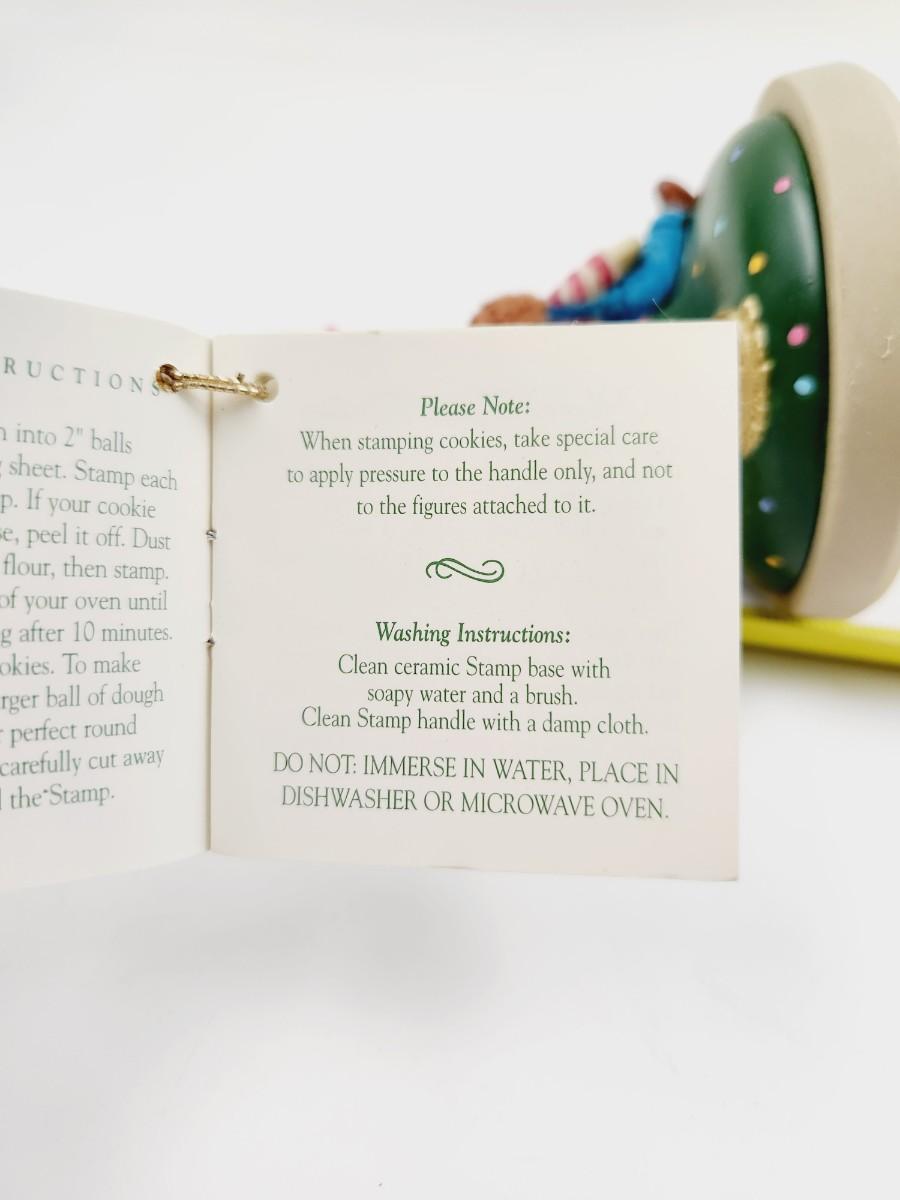 RUCTIONS
into 2" balls
sheet. Stamp each
p. If your cookie
se, peel it off. Dust
flour, then stamp.
of your oven until
g after 10 minutes.
okies. To make
rger ball of dough
perfect round
carefully cut away
the Stamp.
Please Note:
When stamping cookies, take special care
to apply pressure to the handle only, and not
to the figures attached to it.
Washing Instructions:
Clean ceramic Stamp base with
soapy water and a brush.
Clean Stamp handle with a damp cloth.
DO NOT: IMMERSE IN WATER, PLACE IN
DISHWASHER OR MICROWAVE OVEN.